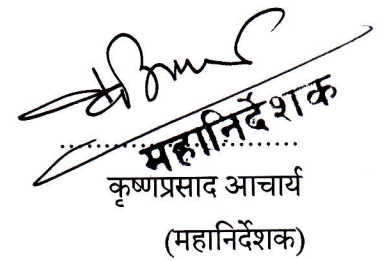 महानिर्देशक
कृष्णप्रसाद आचार्य
(महानिर्देशक)